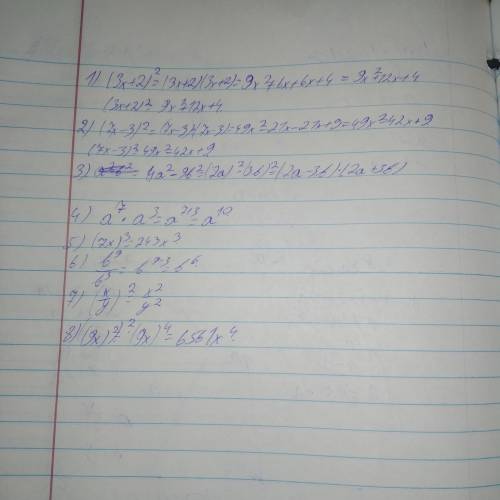 1) (3x+2)²=(3x+2)(3x+2)=9x²+6x+6x+4=9x²+12x+4
(3x+2)²=9x²+12x+4
2) (7x-3)²=(7x-3)(7x-3)=49x²-21x-21x+9=49x²-42x+9
(7x-3)²=49x²-42x+9
3) 4a²-9b²=(2a)²-(3b)²=(2a-3b)·(2a+3b)
4) a⁷·a³=a⁷⁺³=a¹⁰
5) (7x)³=243x³
6) b⁹/b³=b⁹⁻³=b⁶
7) (x/y)²=x²/y²
8) ((9x)²)²=(9x)⁴=6561x⁴